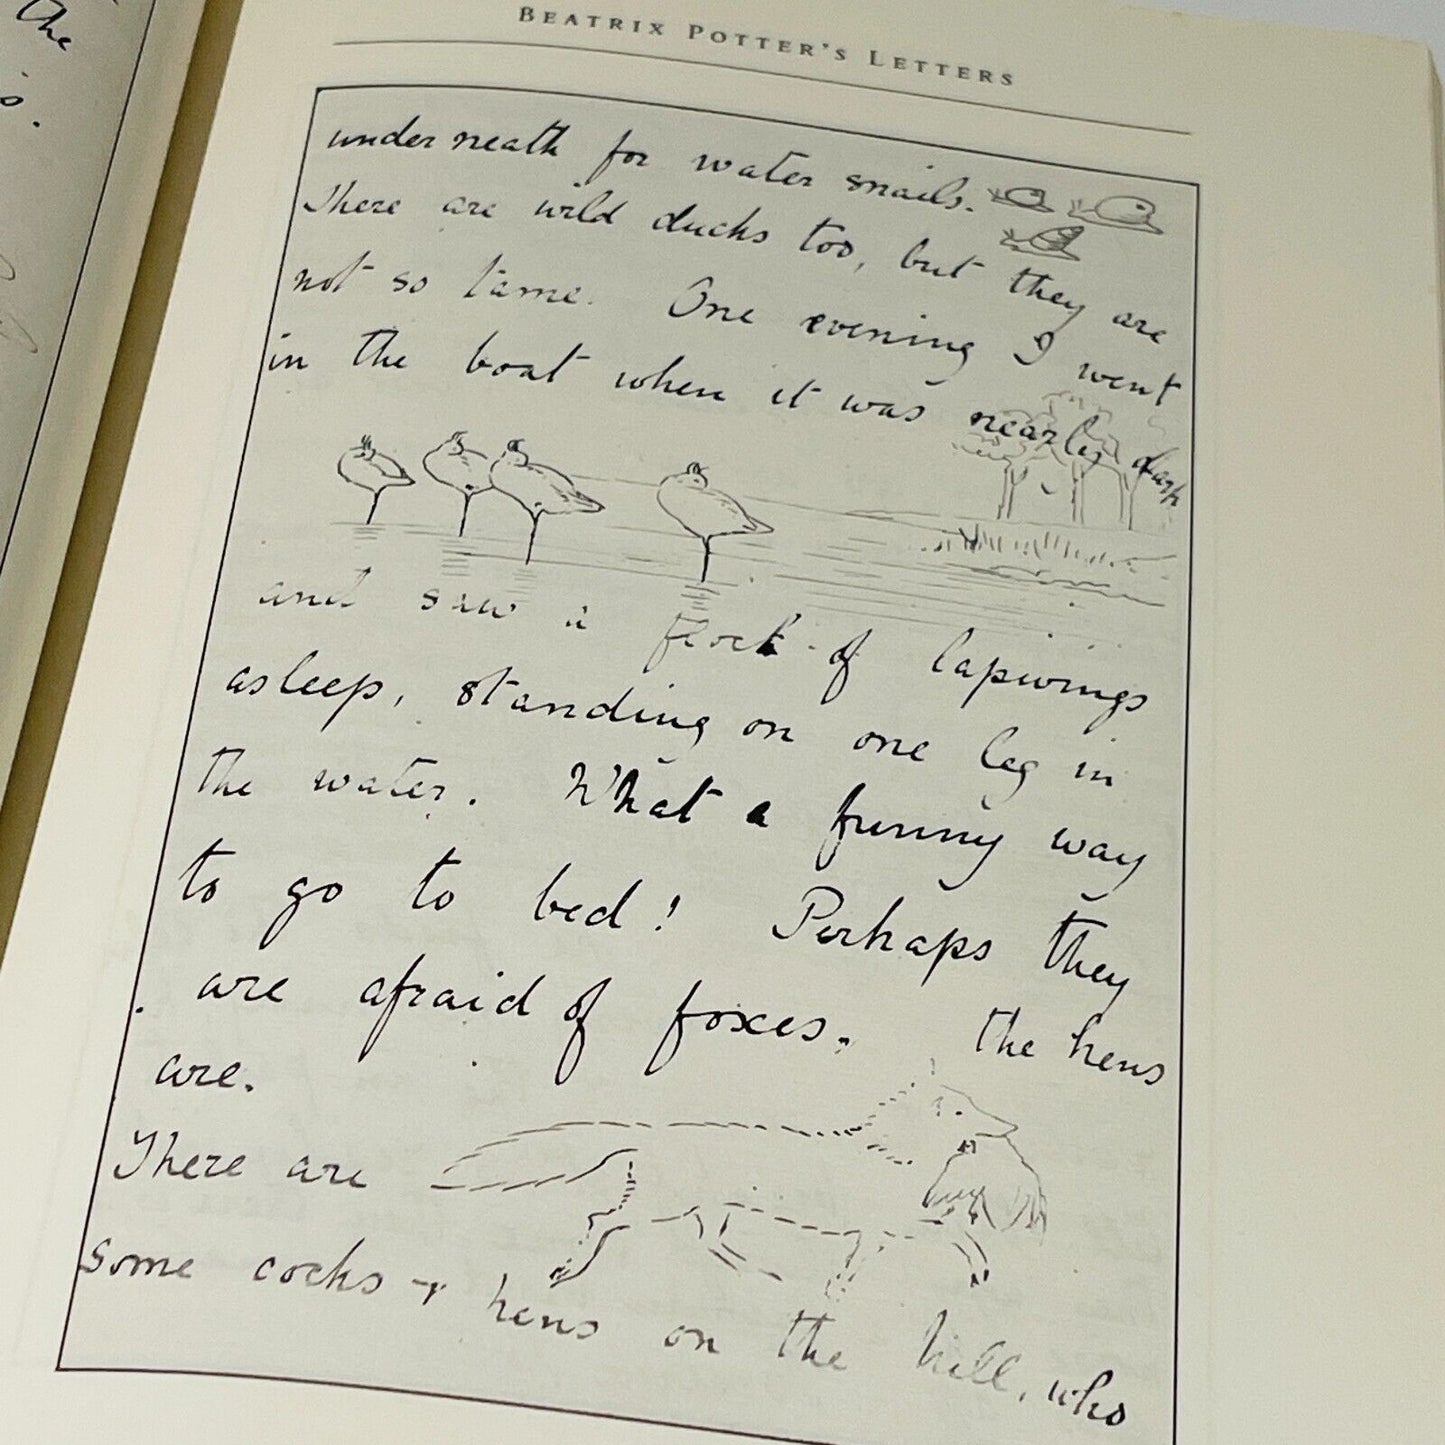 the
is.
BEATRIX POTTER'S LETTERS
underneath for water snails.
There are wild ducks too, but they are
not so tame. One evening I went
in the boat when it was nearly dark
and saw a flock of lapwings
asleep, standing on one leg in
the water. What a funny way
to go to bed! Perhaps they
are afraid of foxes. the hens
are.
There are
some cocks + hens on the hill, who